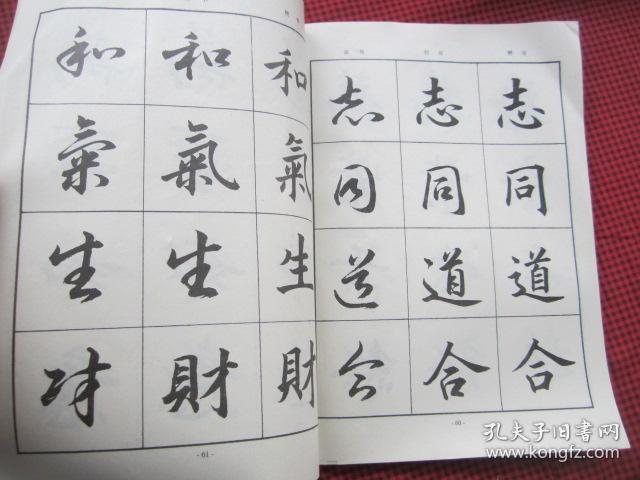 志同道合
志同道合
志同道合
- 60 -
和氣生財
和氣生財
和氣生財
- 61 -
孔夫子旧书网
www.kongfz.com